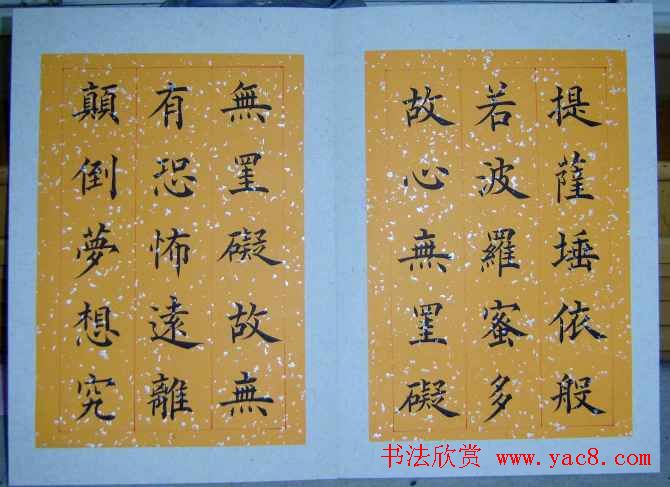 提薩埵依般
若波羅蜜多
故心無罣礙
無罣礙故無
有恐怖遠離
顛倒夢想究
书法欣赏 www.yac8.com